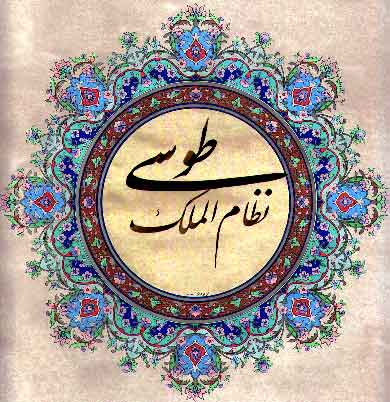 طوسی
نظام الملک